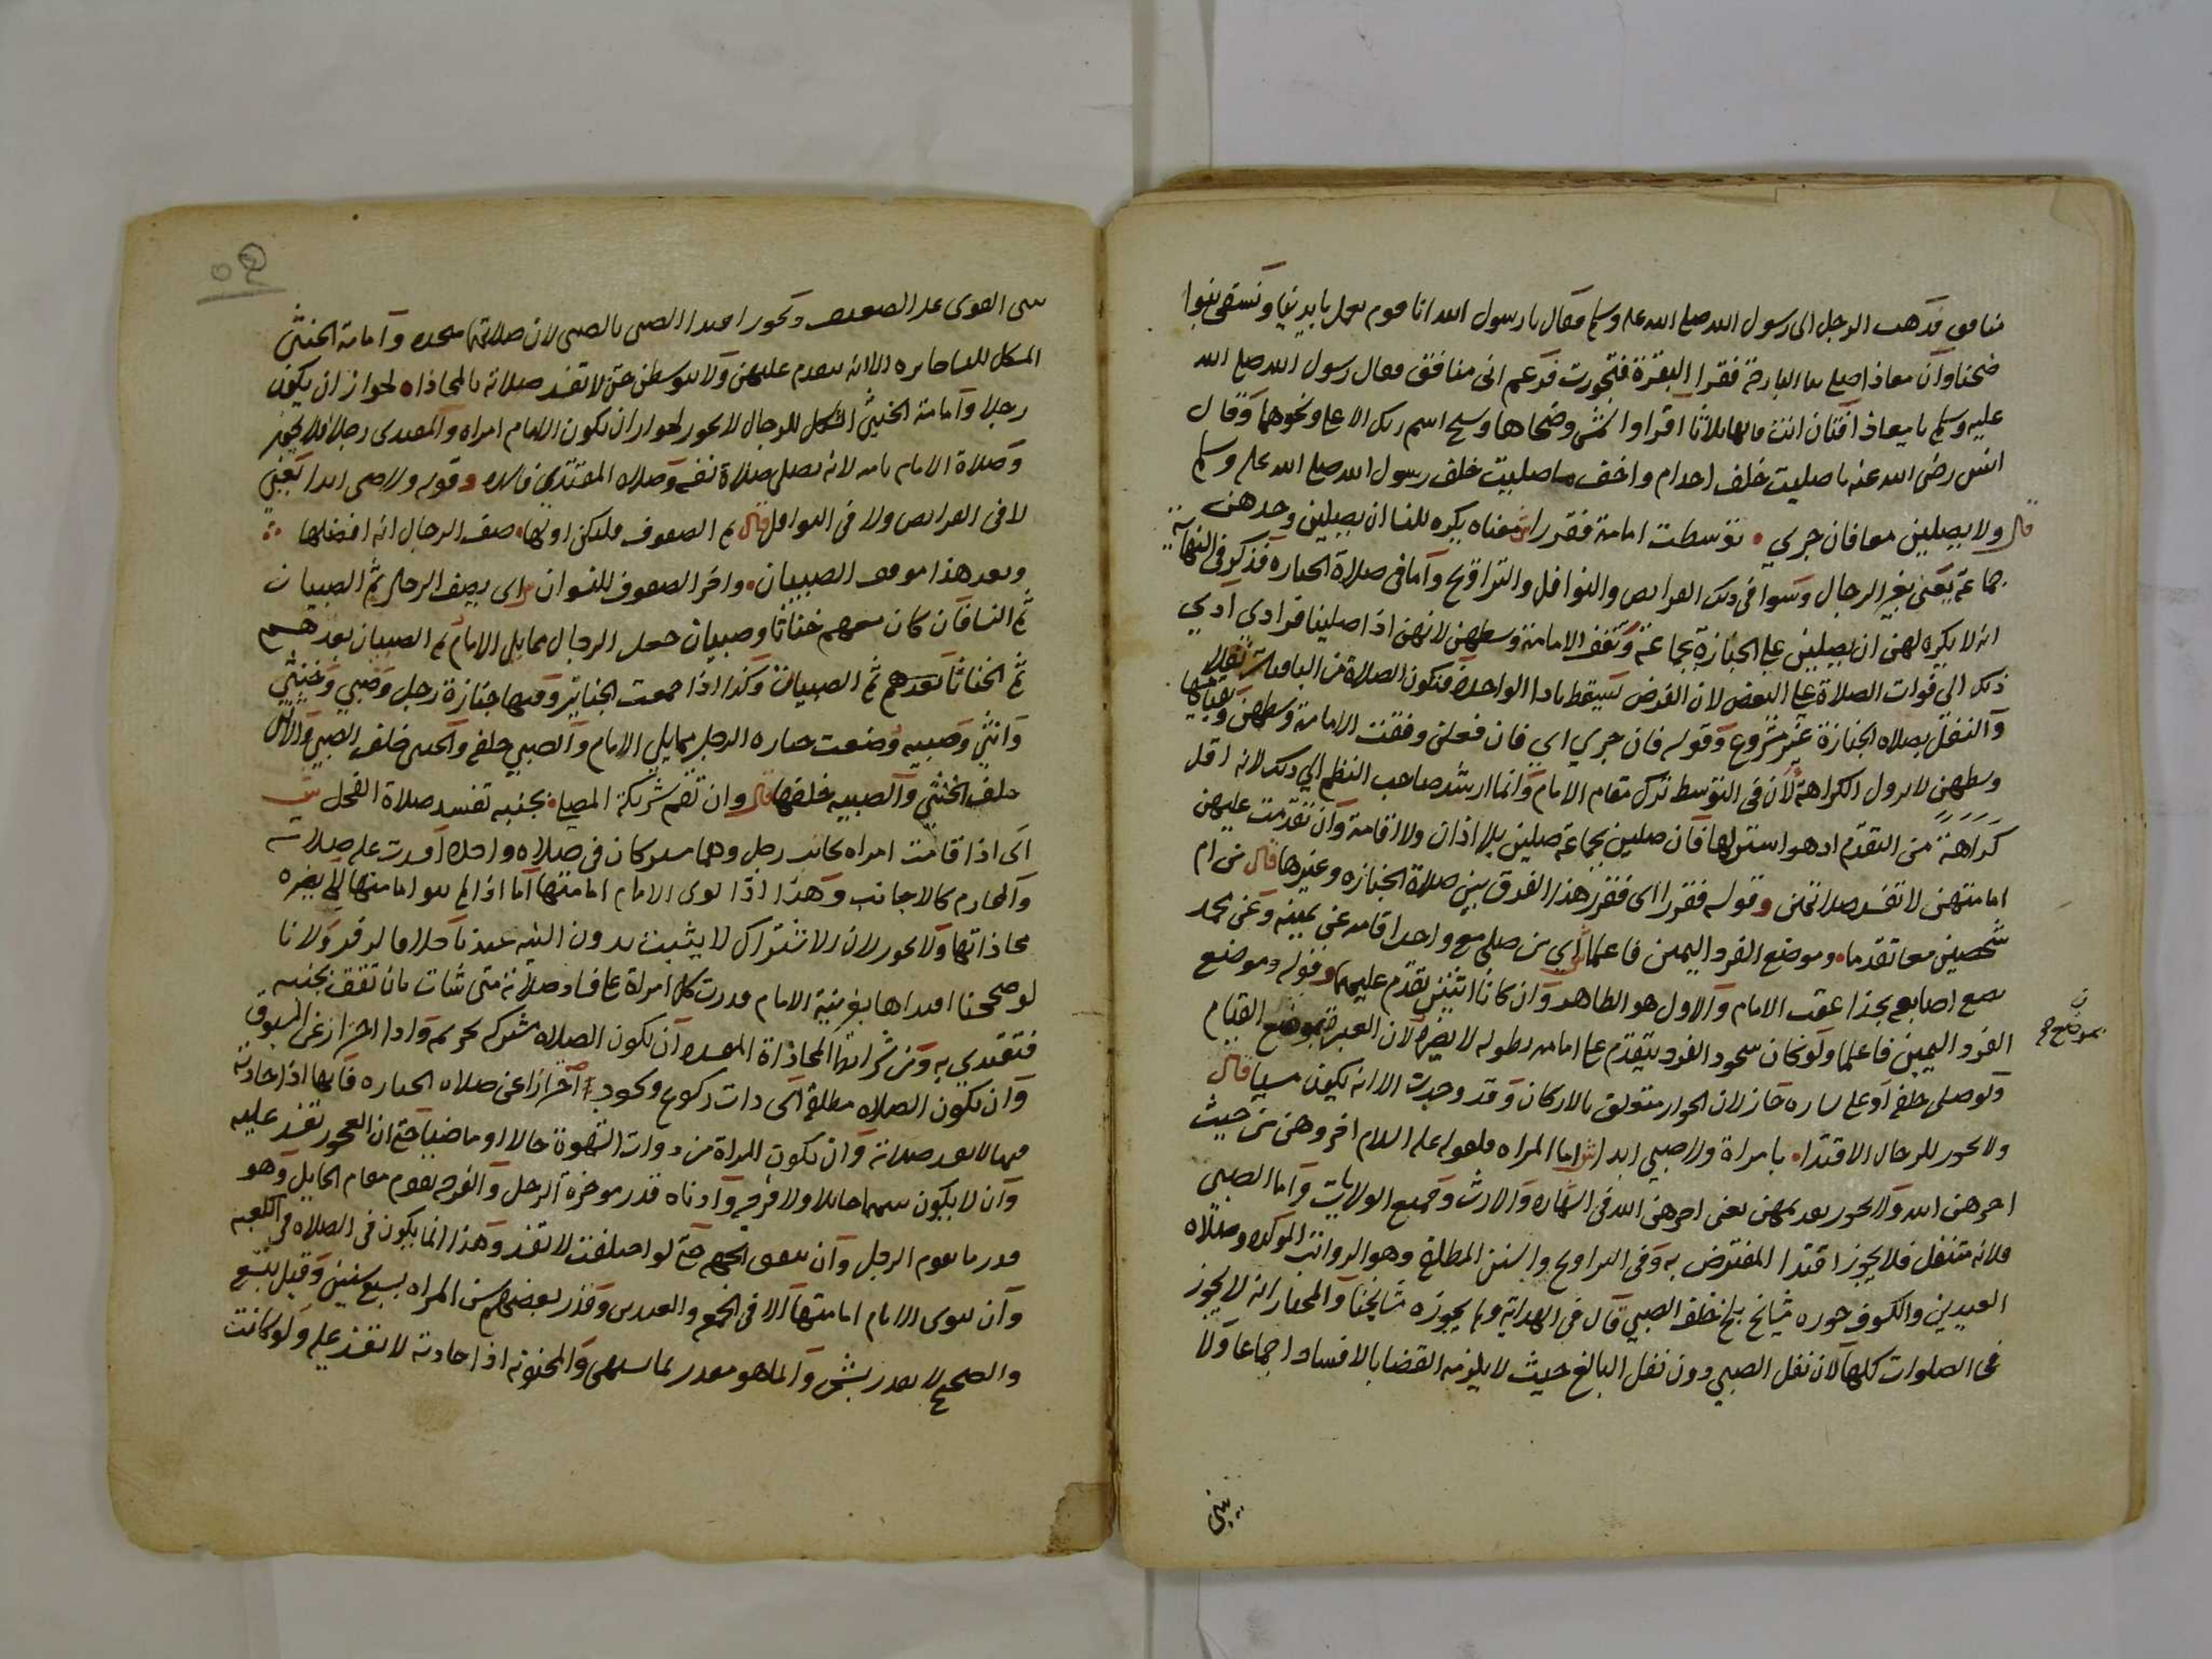 منافق فذهب الرجل الى رسول الله صلى الله عليه وسلم فقال يا رسول الله انا قوم نعمل بايدينا ونسقى بنواـ
ضحنا وان معاذا صلى بنا البارحة فقرا البقرة فتجوزت فزعم انى منافق فقال رسول الله صلى الله
عليه وسلم يا معاذ افتان انت قالها ثلاثا اقرا والشمس وضحاها وسبح اسم ربك الاعلى ونحوهما وقال
انس رضى الله عنه ما صليت خلف احد اتم واخف مما صليت خلف رسول الله صلى الله عليه وسلم
قال ولا يصلين معا فان جري • توسطت امامة فقرر اش معناه يكره للنسا ان يصلين وحدهن
جماعة يعنى بغير الرجال وسوا فى ذلك الفرايض والنوافل والتراويح واما فى صلاة الجنازة فذكر فى النهاية
انه لا يكره لهن ان يصلين على الجنازة بجماعة وتقف الامامة وسطهن لانهن اذا صلينا فرادى ادي
ذلك الى فوات الصلاة على البعض لان الفرض يسقط بادا الواحدة فتكون الصلاة من الباقيات نفلا
والتنفل بصلاة الجنازة غير مشروع وقوله فان جري اي فان فعلن وقفت الامامة وسطهن وبقيامها
وسطهن لا تزول الكراهة لان فى التوسط ترك مقام الامام وانما ارشد صاحب النظم الي ذلك لانه اقل
كراهة من التقدم اذ هو استر لها فان صلين بجماعة صلين بلا اذان ولا اقامة وان تقدمت عليهن
امامتهن لا تفسد صلاتهن وقوله فقررا اى فقرر هذا الفرق بين صلاة الجنازه وغيرها قال من ام
شخصين معا تقدما • وموضع الفرد اليمين فاعلما ش اي من صلى مع واحد اقامه عن يمينه وعن محمد
يضع اصابعه بحذا عقب الامام والاول هو الظاهر وان كانا اثنين تقدم عليهما وقوله وموضع
الفرد اليمين فاعلما ولو كان سجود الفرد يتقدم على امامه لطوله لا يضره لان العبرة بموضع القيام
ن بموضع صح
ولو صلى خلفه او على يساره جاز لان الجواز متعلق بالاركان وقد وجدت الا انه يكون مسيا قال
ولا يجوز للرجال الاقتدا • بامراة ولا صبي ابدا ش اما المراه فلقوله عليه السلام اخروهن من حيث
اخرهن الله ولا يجوز تقديمهن يعنى اخرهن الله فى الشهاده والارث وجميع الولايات واما الصبى
فلانه متنفل فلا يجوز اقتدا المفترض به وفى التراويح والسنن المطلقة وهو الرواتب الموكده وصلاة
العيدين والكسوف جوزه مشايخ بلخ خلف الصبي قال فى الهداية ولم يجوزه مشايخنا والمختار انه لا يجوز
فى الصلوات كلها لان نفل الصبي دون نفل البالغ حيث لا يلزمه القضا بالافساد اجماعا ولا
يبنى
٥٤
يبنى القوى على الضعيف ويجوز اقتدا الصبى بالصبى لان صلاتهما متحدة وامامة الخنثى
المشكل للنسا جايزه الا انه يتقدم عليهن ولا يتوسطن حتى لا تفسد صلاته بالمحاذاه لجواز ان يكون
رجلا وامامة الخنثى المشكل للرجال لا يجوز لجواز ان يكون الامام امراه والمقتدى رجلا فلا يجوز
وصلاة الامام تامه لانه يصلى صلاة نفسه وصلاه المقتدي فاسده وقوله ولا صبى ابدا يعني
لا فى الفرايض ولا فى النوافل قال ثم الصفوف فليكن اولها • صف الرجال انه افضلها
وبعد هذا موقف الصبيان • واخر الصفوف للنسوان ش اى يصف الرجال ثم الصبيان
ثم النسا فان كان معهم خناثا وصبيان جعل الرجال مما يلى الامام ثم الصبيان بعدهم
ثم الخناثا بعدهم ثم الصبيات وكذا اذا جمعت الجنايز وفيها جنازة رجل وصبي وخنثي
وانثي وصبيه وضعت جنازه الرجل مما يلي الامام والصبي خلفه والخنثى خلف الصبي والانثى
خلف الخنثي والصبيه خلفها قال وان تقم شريكة المصلى • بجنبه تفسد صلاة الفحل ش
اى اذا قامت امراه بجانب رجل وهما مشتركان فى صلاه واحدة افسدت عليه صلاته
والمحارم كالاجانب وهذا اذا نوى الامام امامتها اما اذا لم ينو امامتها لم يضره
محاذاتها ولا يجوز لان الاشتراك لا يثبت بدون النيه عندنا خلافا لزفر ولانا
لو صححنا اقتداها بغير نية الامام قدرت كل امراة على فساد صلاته متى شات بان تقف بجنبه
فتقتدي به ومن شرايط المحاذاة المفسده ان تكون الصلاه مشتركه تحريمة وادا احترازا عن المسبوق
وان تكون الصلاه مطلقة اى ذات ركوع وسجود احترازا عن صلاه الجنازه فانها اذا حاذته
فيها لا تفسد صلاته وان تكون المراة من ذوات الشهوة حالا او ماضيا حتى ان العجوز تفسد عليه
وان لا يكون بينهما حايلا ولا فرجه وادناه قدر موخرة الرحل والفرجه تقوم مقام الحايل وهو
قدر ما يقوم الرجل وان تتفق الجهه حتى لو اختلفت لا تفسد وهذا انما يكون فى الصلاه فى الكعبه
وان ينوى الامام امامتها الا فى الجمع والعيدين وقدر بعضهم سن المراه بسبع سنين وقيل بتسع
والصحيح لا يقدر بشى وانما هو مقدر بما يشتهى والمجنونه اذا حاذته لا تفسد عليه ولو كانت